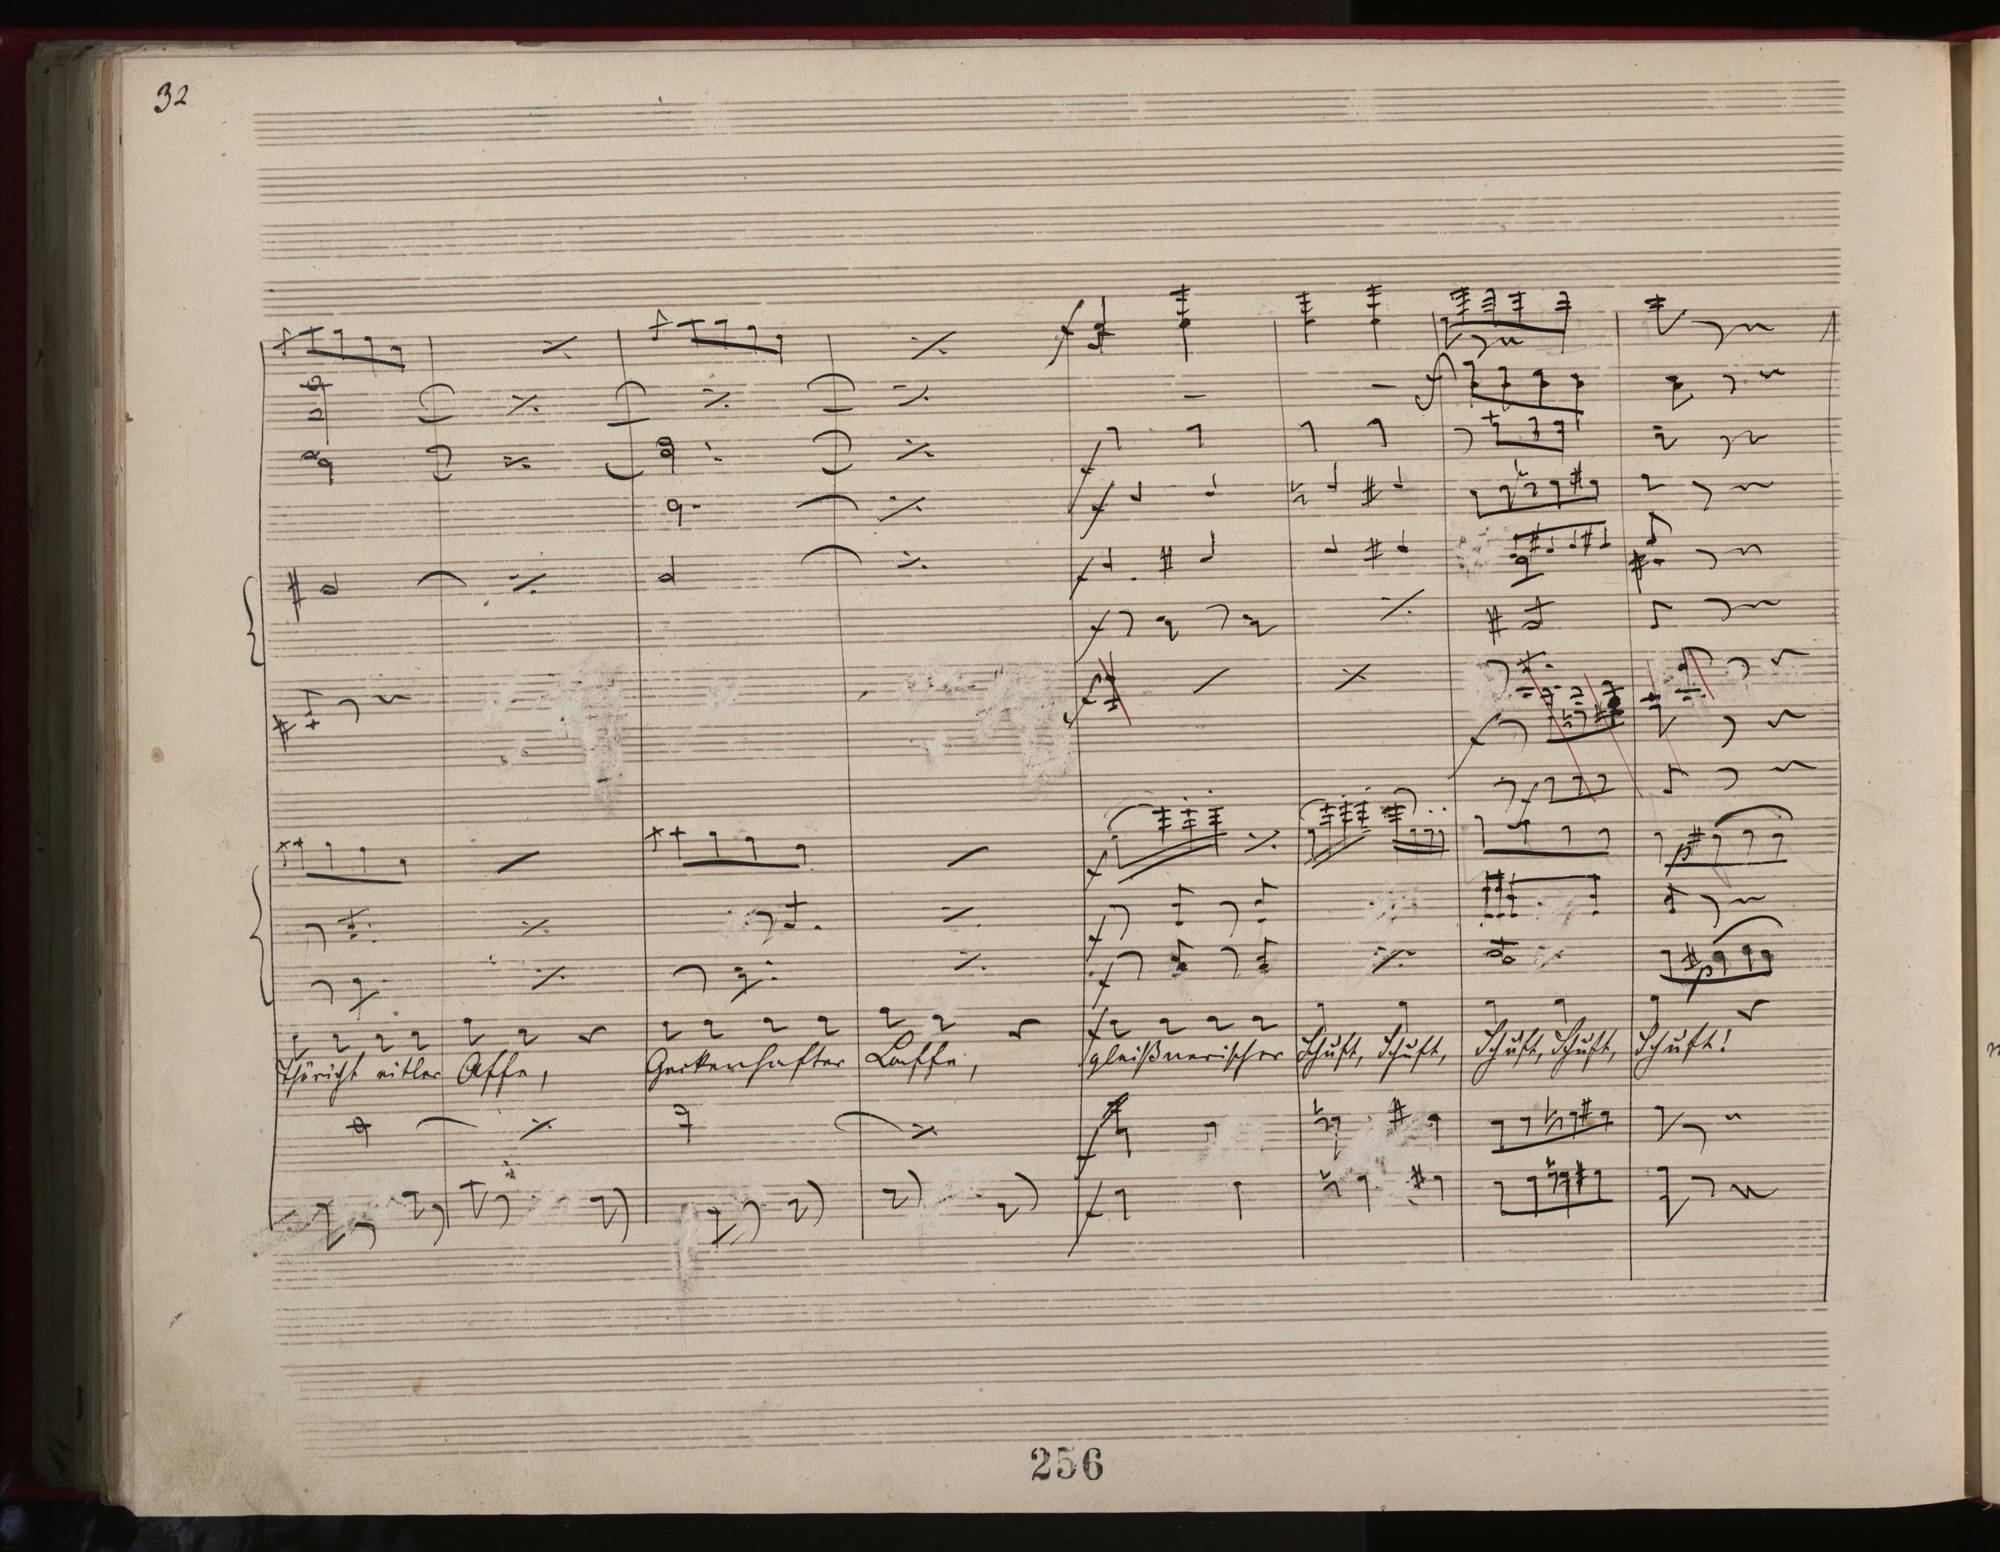 32
Thöricht eitler Affe, Geckenhafter Laffe, gleißnerischer Schuft, Schuft, Schuft, Schuft, Schuft!
256